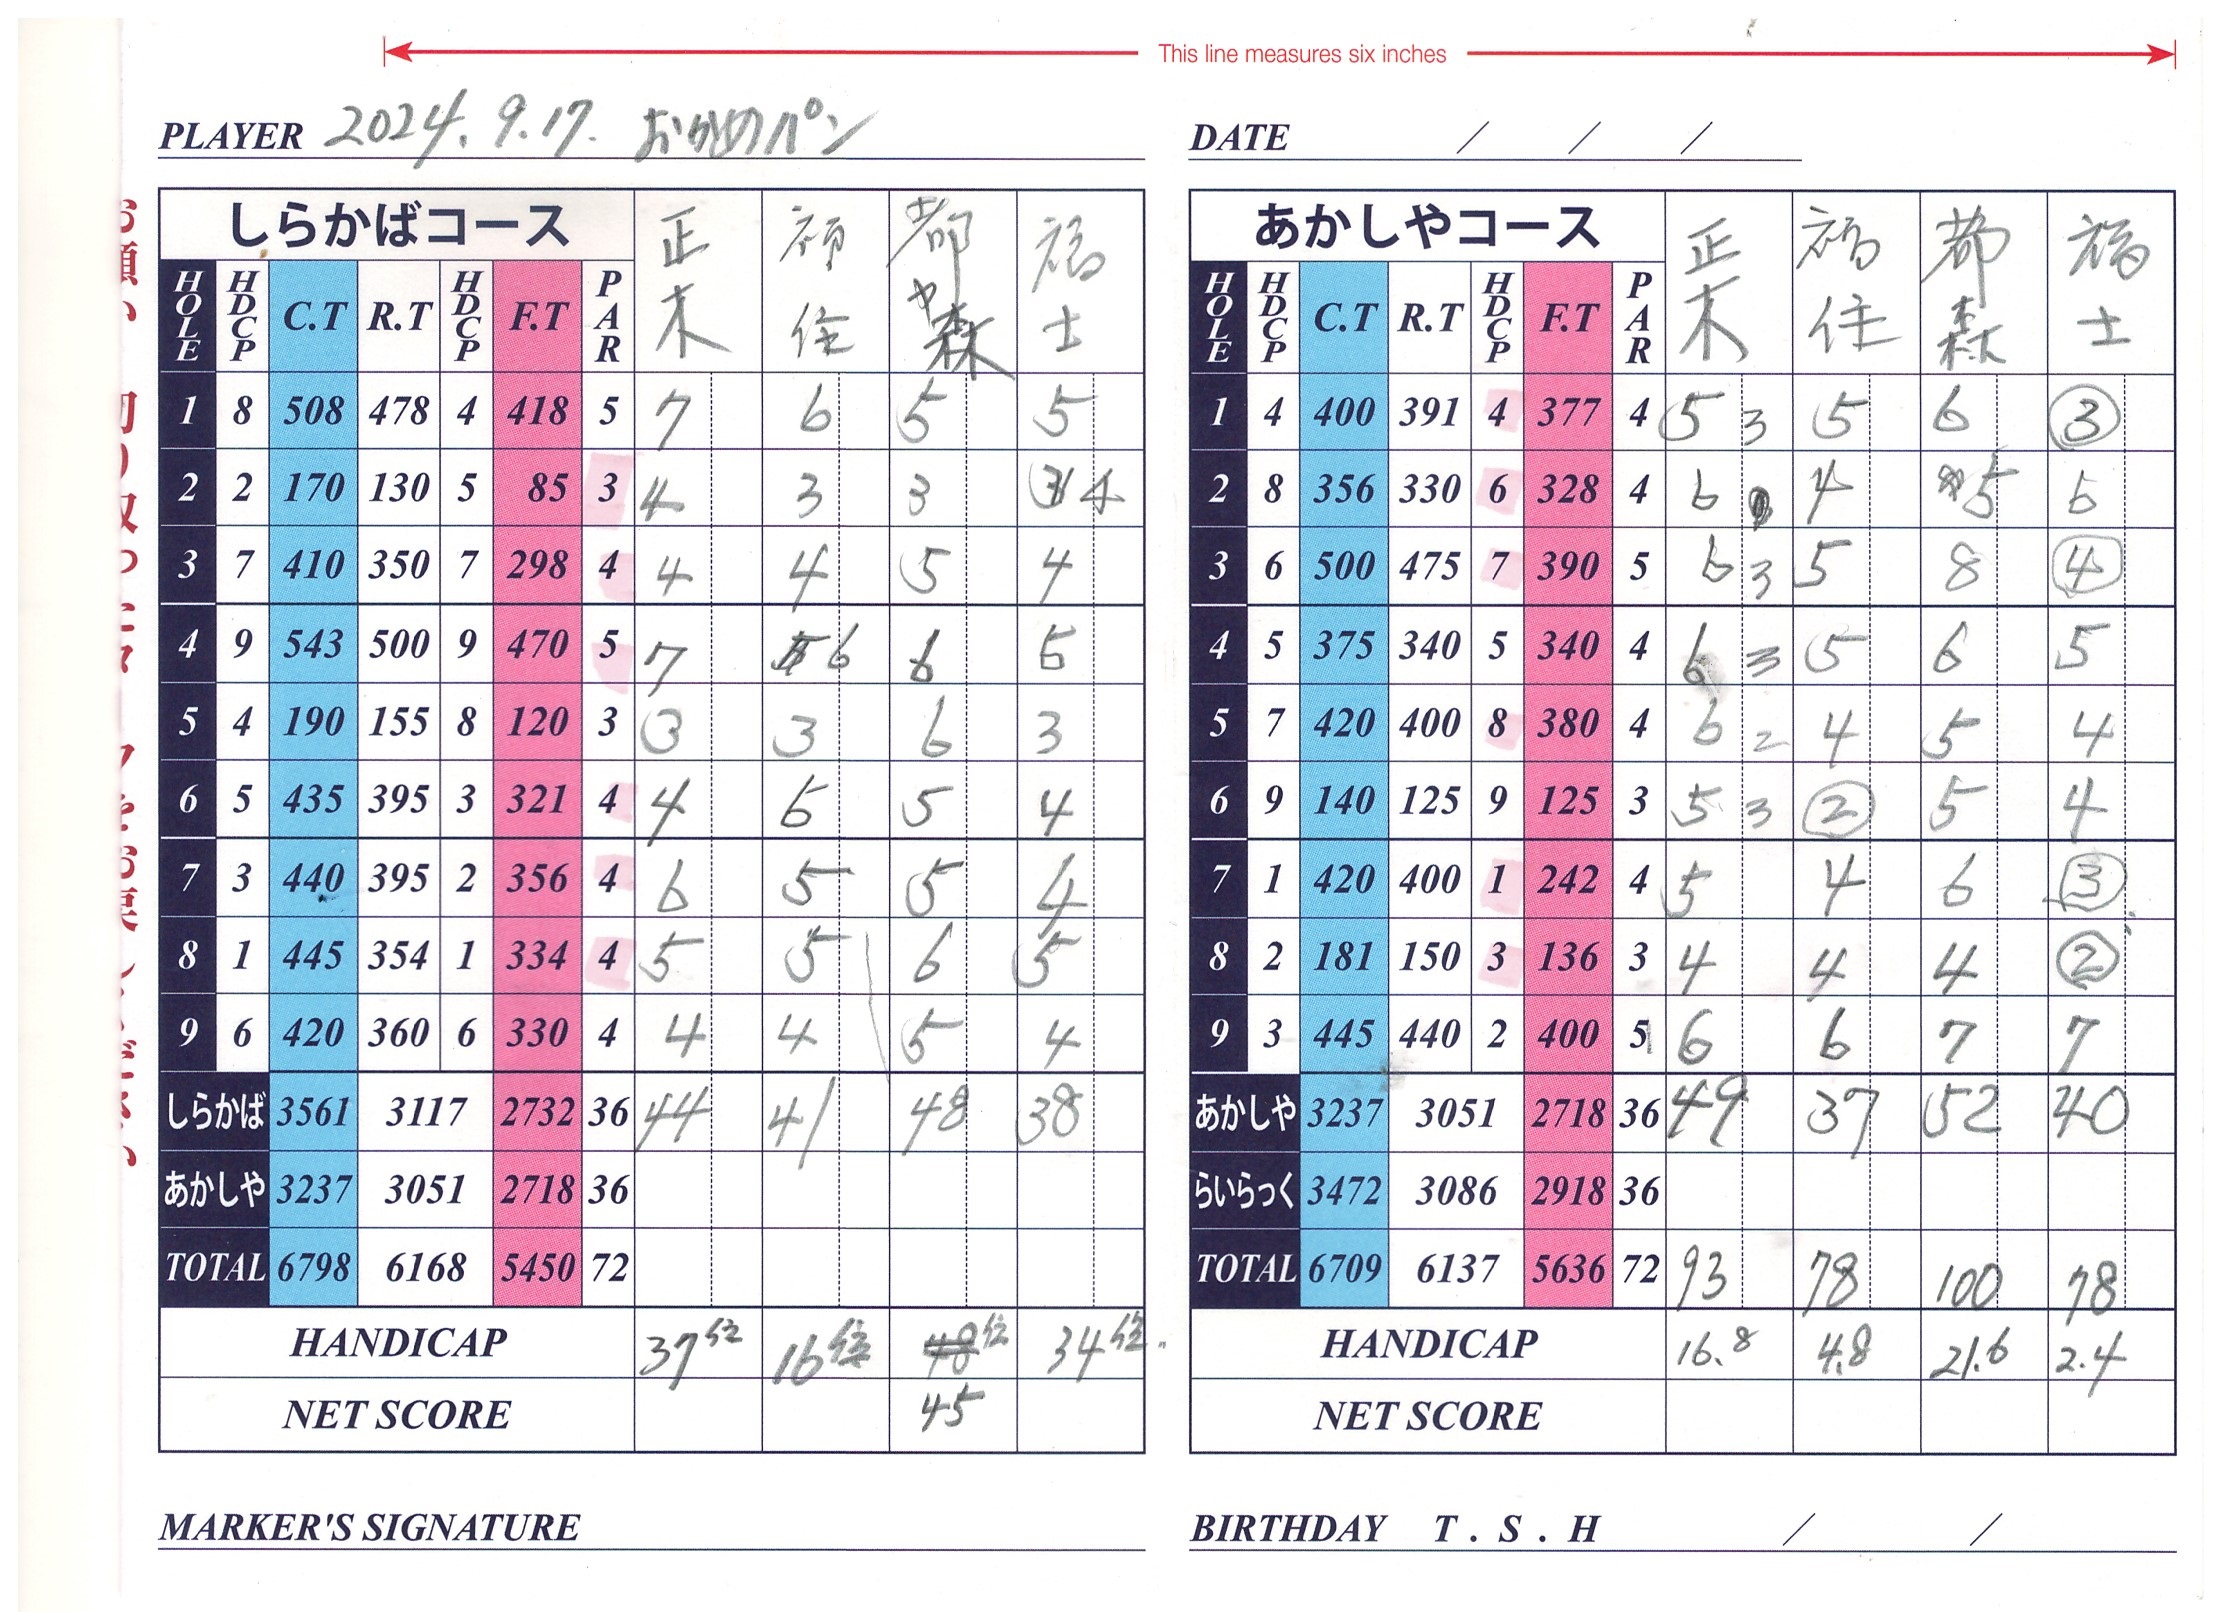 This line measures six inches
PLAYER 2024.9.17. おかめのパン
DATE / / /
しらかばコース 正木 福住 都森 福士
HOLE HDCP C.T R.T HDCP F.T PAR
1 8 508 478 4 418 5 7 6 5 5
2 2 170 130 5 85 3 4 3 3 4
3 7 410 350 7 298 4 4 4 5 4
4 9 543 500 9 470 5 7 6 6 5
5 4 190 155 8 120 3 3 3 6 3
6 5 435 395 3 321 4 4 5 5 4
7 3 440 395 2 356 4 6 5 5 4
8 1 445 354 1 334 4 5 5 6 5
9 6 420 360 6 330 4 4 4 5 4
しらかば 3561 3117 2732 36 44 41 48 38
あかしや 3237 3051 2718 36
TOTAL 6798 6168 5450 72
HANDICAP 37位 16位 48位 34位
NET SCORE 45
MARKER'S SIGNATURE
あかしやコース 正木 福住 都森 福士
HOLE HDCP C.T R.T HDCP F.T PAR
1 4 400 391 4 377 4 5 3 5 6 3
2 8 356 330 6 328 4 6 4 5 6
3 6 500 475 7 390 5 6 3 5 8 4
4 5 375 340 5 340 4 6 3 5 6 5
5 7 420 400 8 380 4 6 2 4 5 4
6 9 140 125 9 125 3 5 3 2 5 4
7 1 420 400 1 242 4 5 4 6 3
8 2 181 150 3 136 3 4 4 4 2
9 3 445 440 2 400 5 6 6 7 7
あかしや 3237 3051 2718 36 49 37 52 40
らいらっく 3472 3086 2918 36
TOTAL 6709 6137 5636 72 93 78 100 78
HANDICAP 16.8 4.8 21.6 2.4
NET SCORE
BIRTHDAY T . S . H / /